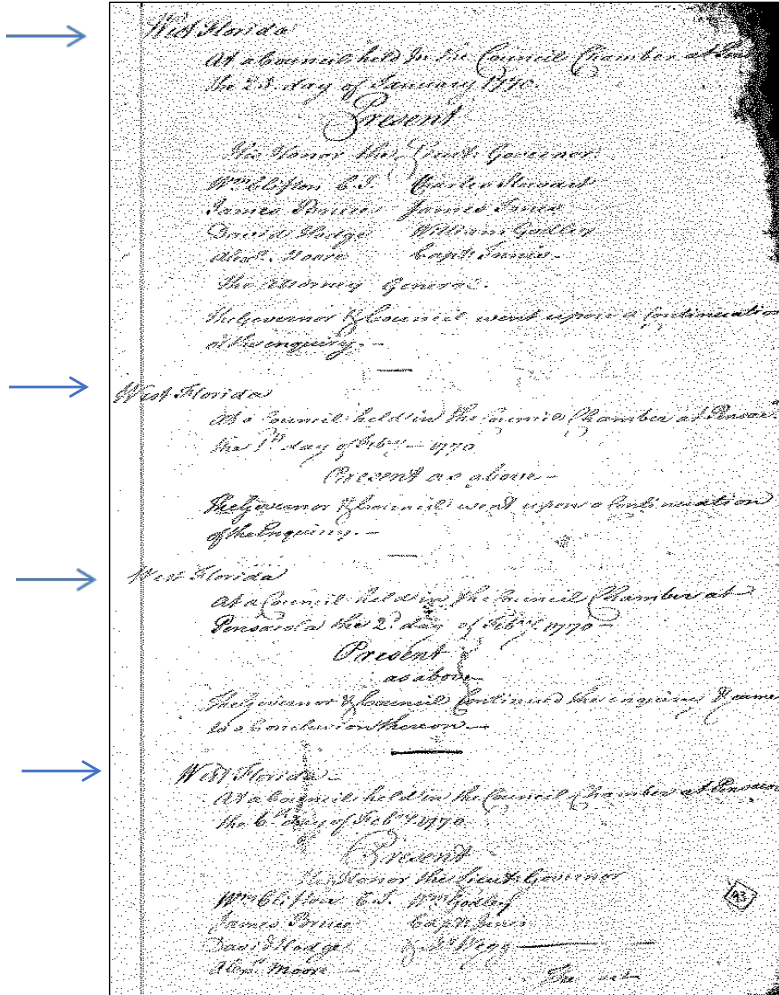 West Florida
At a Council held In the Council Chamber at
the 23 day of January 1770.
Present
His Honor the Lieut. Governor.
Wm Clifton C.J. Charles Stewart
James Bruce James Innes
David Hodge William Godley
Alexr. Moore Capt. Innis.
The Attorney General.
The Governor & Council went upon a Continuation
of the enquiry.—
West Florida
At a Council held in the Council Chamber at Pensac
the 1st day of Feby.— 1770
Present as above—
The Governor & Council went upon a Continuation
of the Enquiry.—
West Florida
At a Council held in the Council Chamber at
Pensacola the 2d day of Feby. 1770—
Present
as above
The Governor & Council Continued the enquiry & came
to a Conclusion thereon.—
West Florida—
At a Council held in the Council Chamber at Pensaco
the 6th day of Feby. 1770
Present
His Honor the Lieut. Governor
Wm Clifton C.J. Wm Godley
James Bruce Capt. Innis
David Hodge & Mr Wegg
Alexr. Moore
43